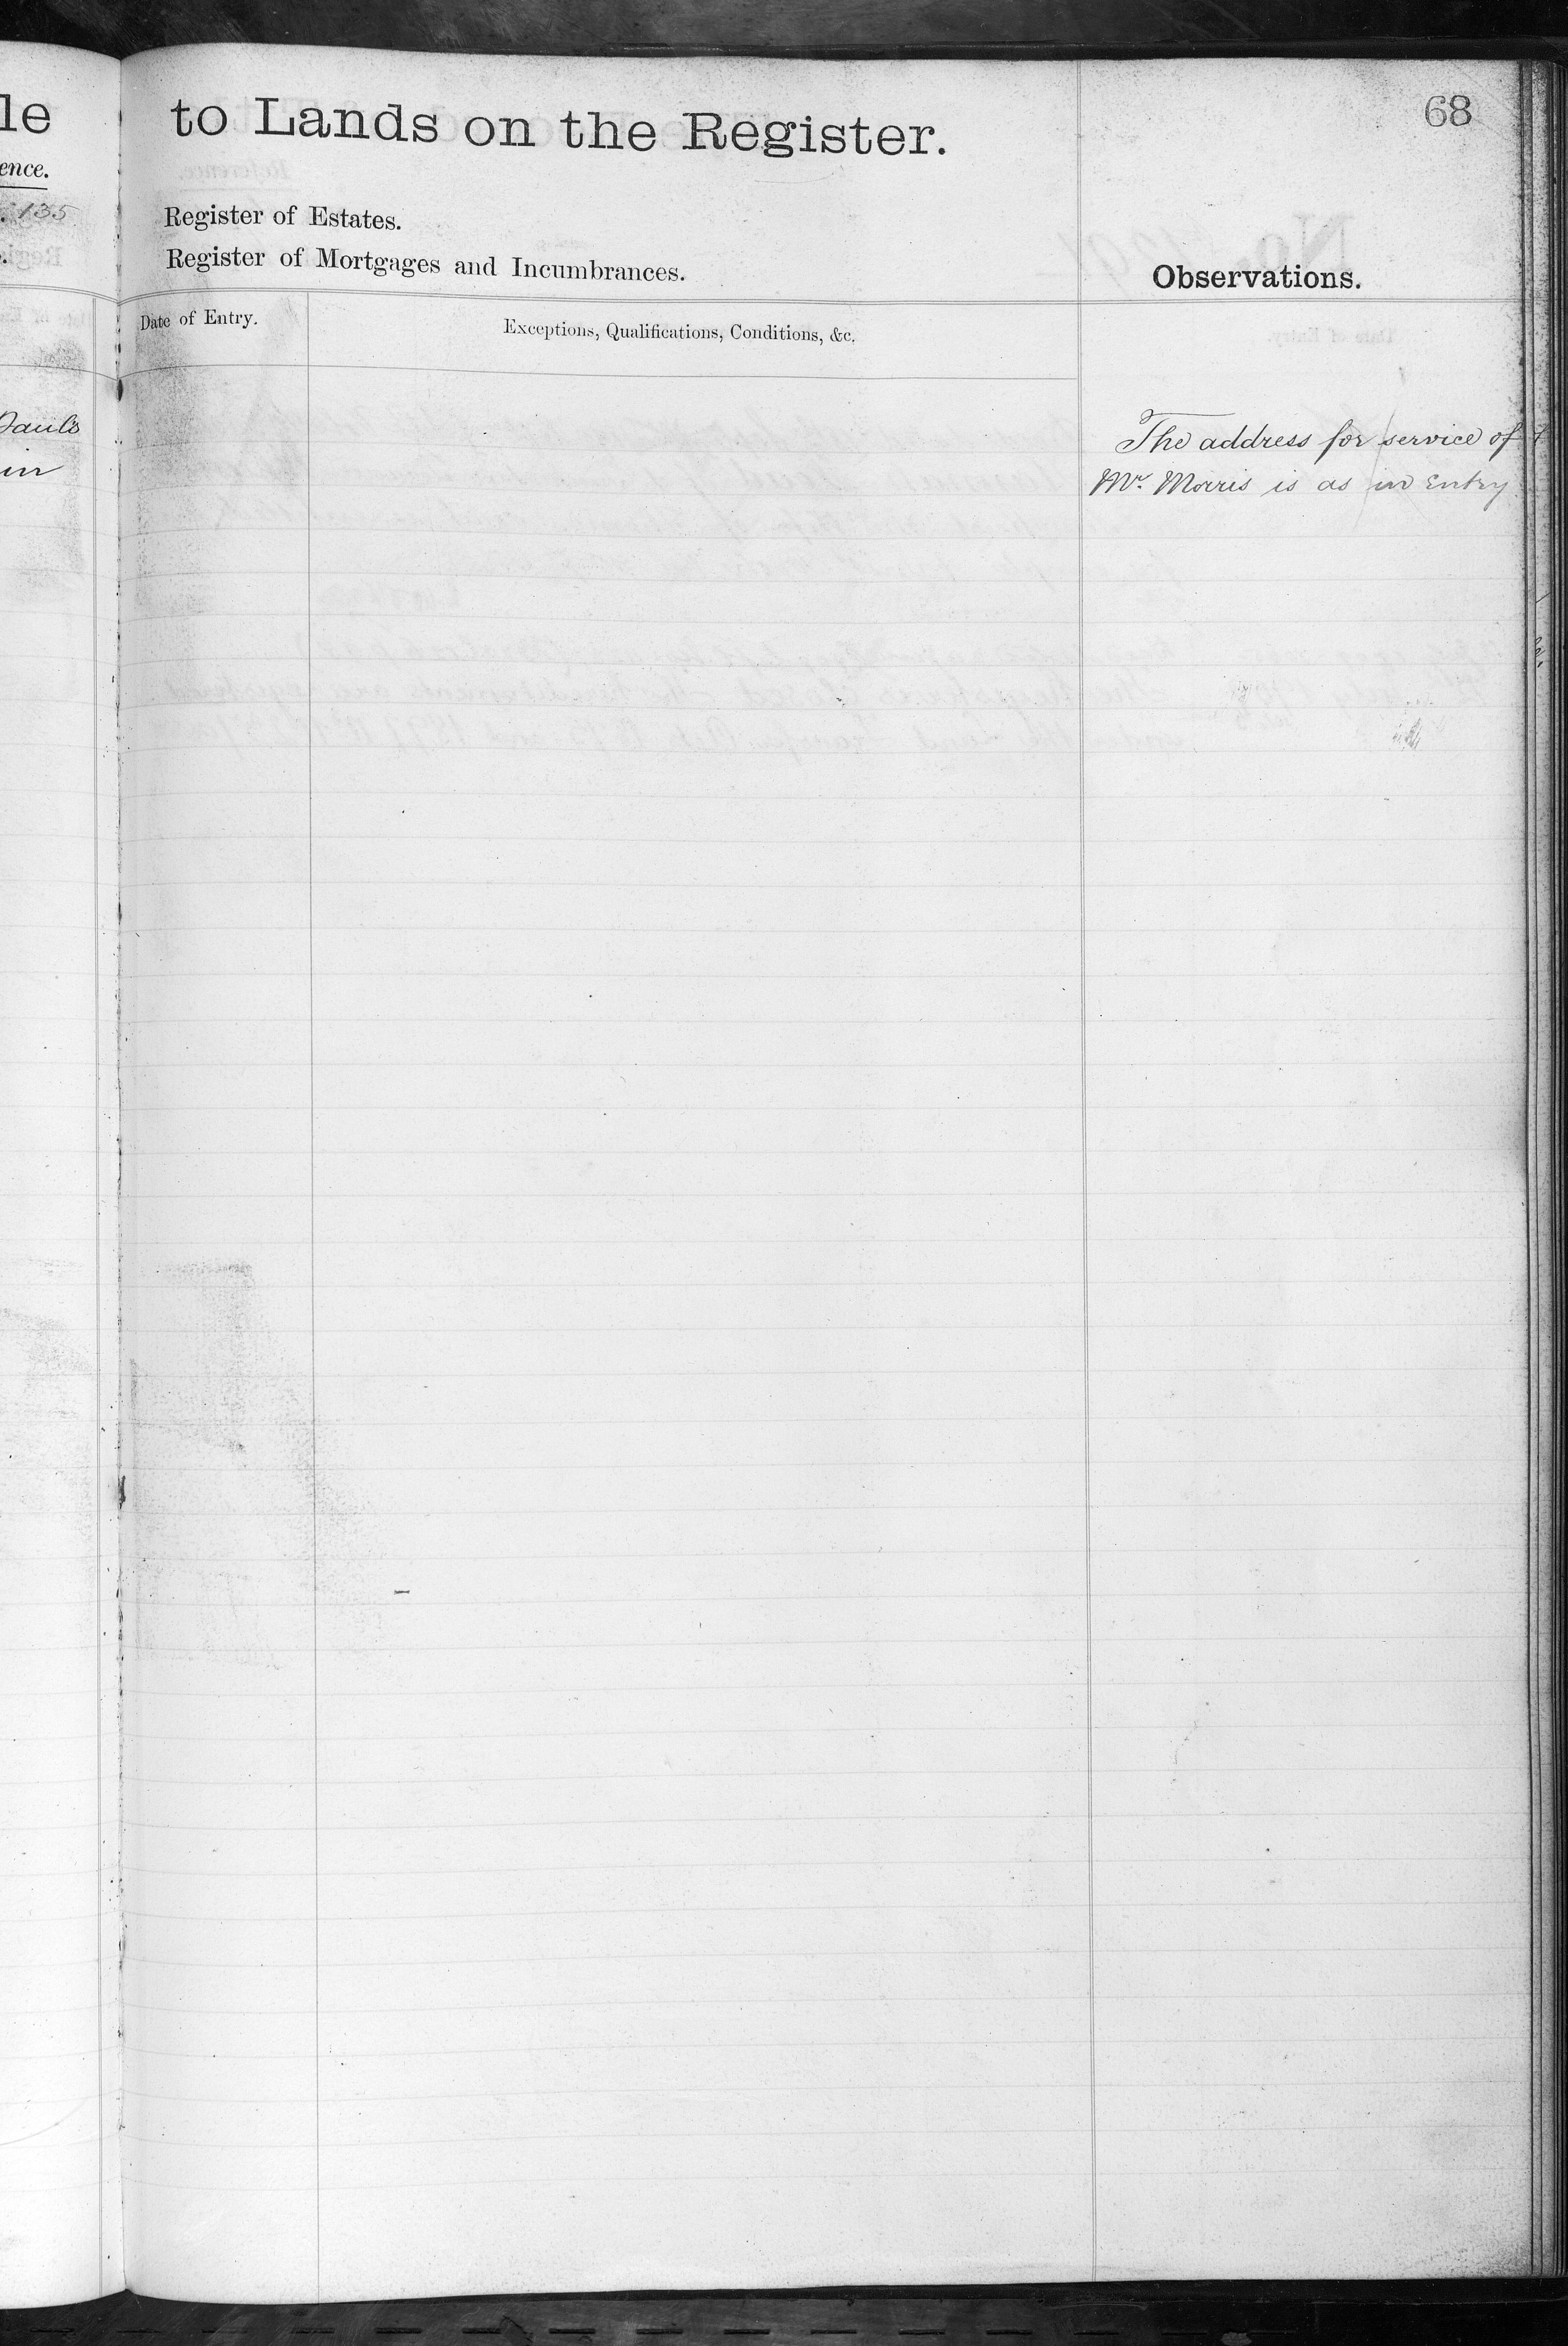 le
ence.
135
Pauls
in
to Lands on the Register.
68
Register of Estates.
Register of Mortgages and Incumbrances.
Observations.
Date of Entry.
Exceptions, Qualifications, Conditions, &c.
The address for service of
Mr. Morris is as in Entry